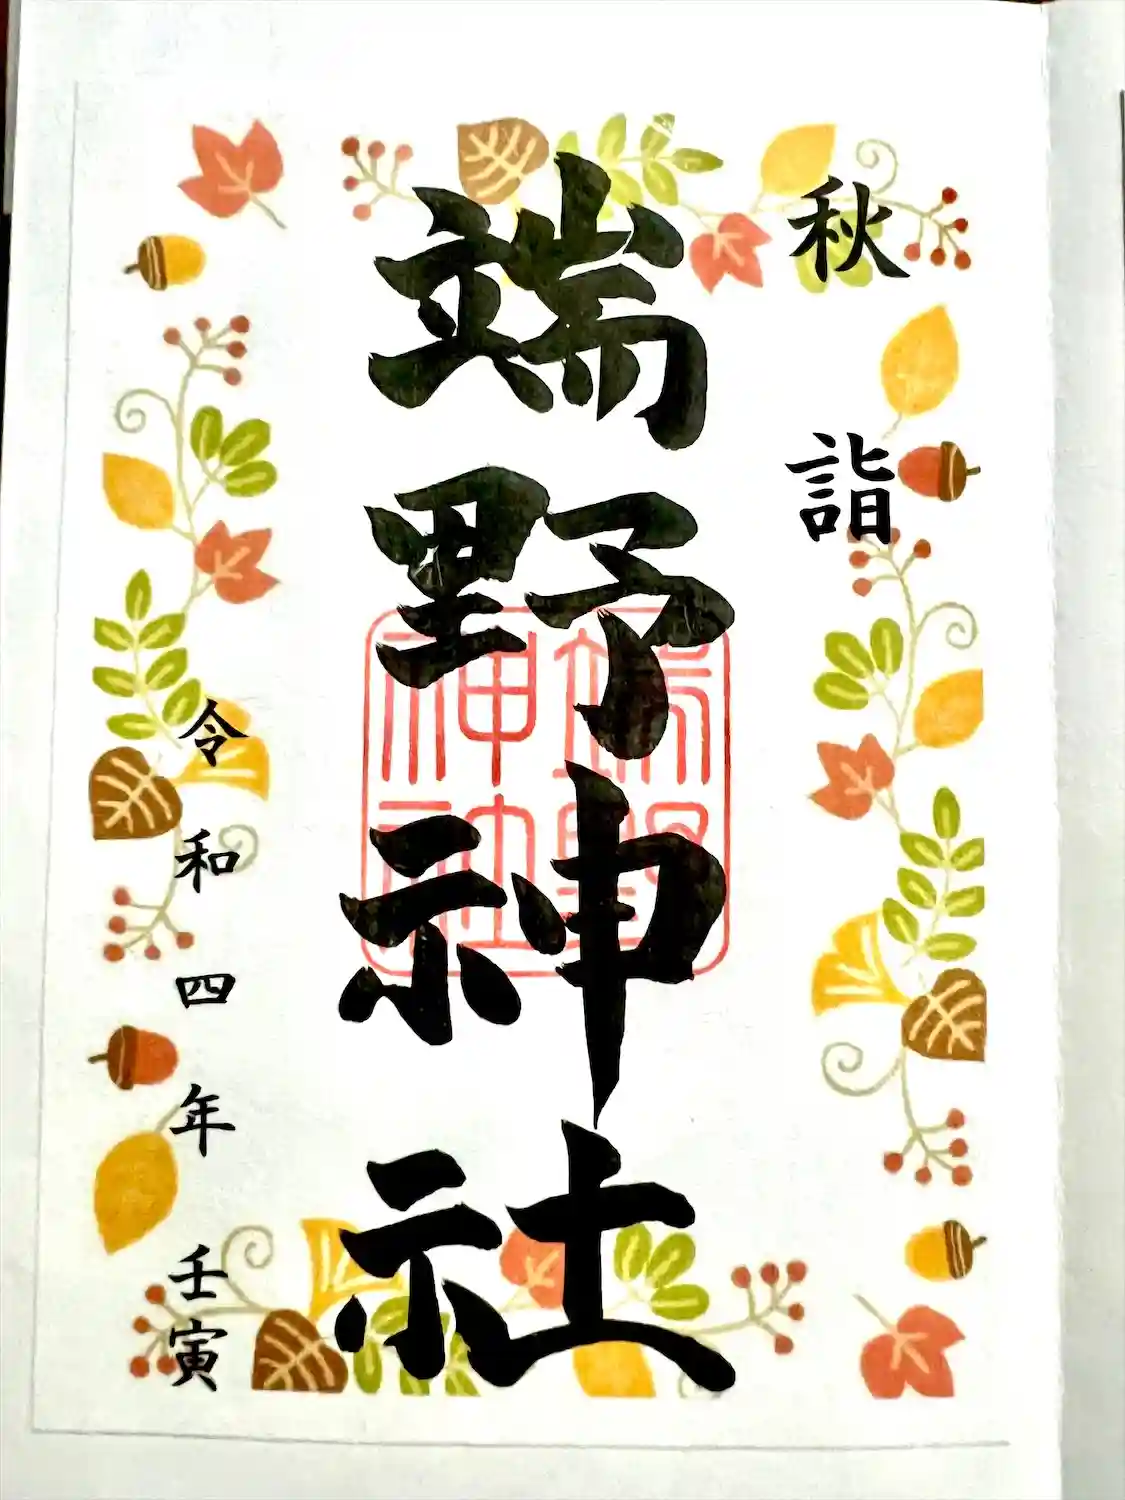 秋詣
端野神社
令和四年壬寅
端野
神社